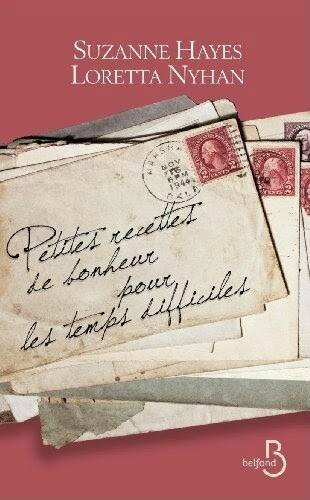 SUZANNE HAYES
LORETTA NYHAN
NOV
6 PM
1944
2
2
2
Petites recettes
de bonheur
pour
les temps difficiles
belfond